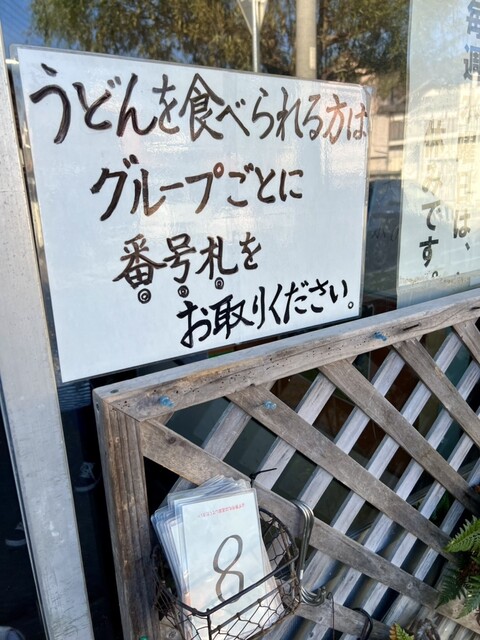 うどんを食べられる方は
グループごとに
番号札を
お取りください。
毎週
は、
です。
8